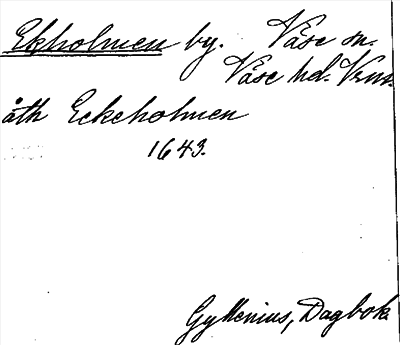 Ekholmen by. Väse sn.
Väse hd. Vrml.
åth Eckeholmen
1643.
Gyllenius, Dagbok